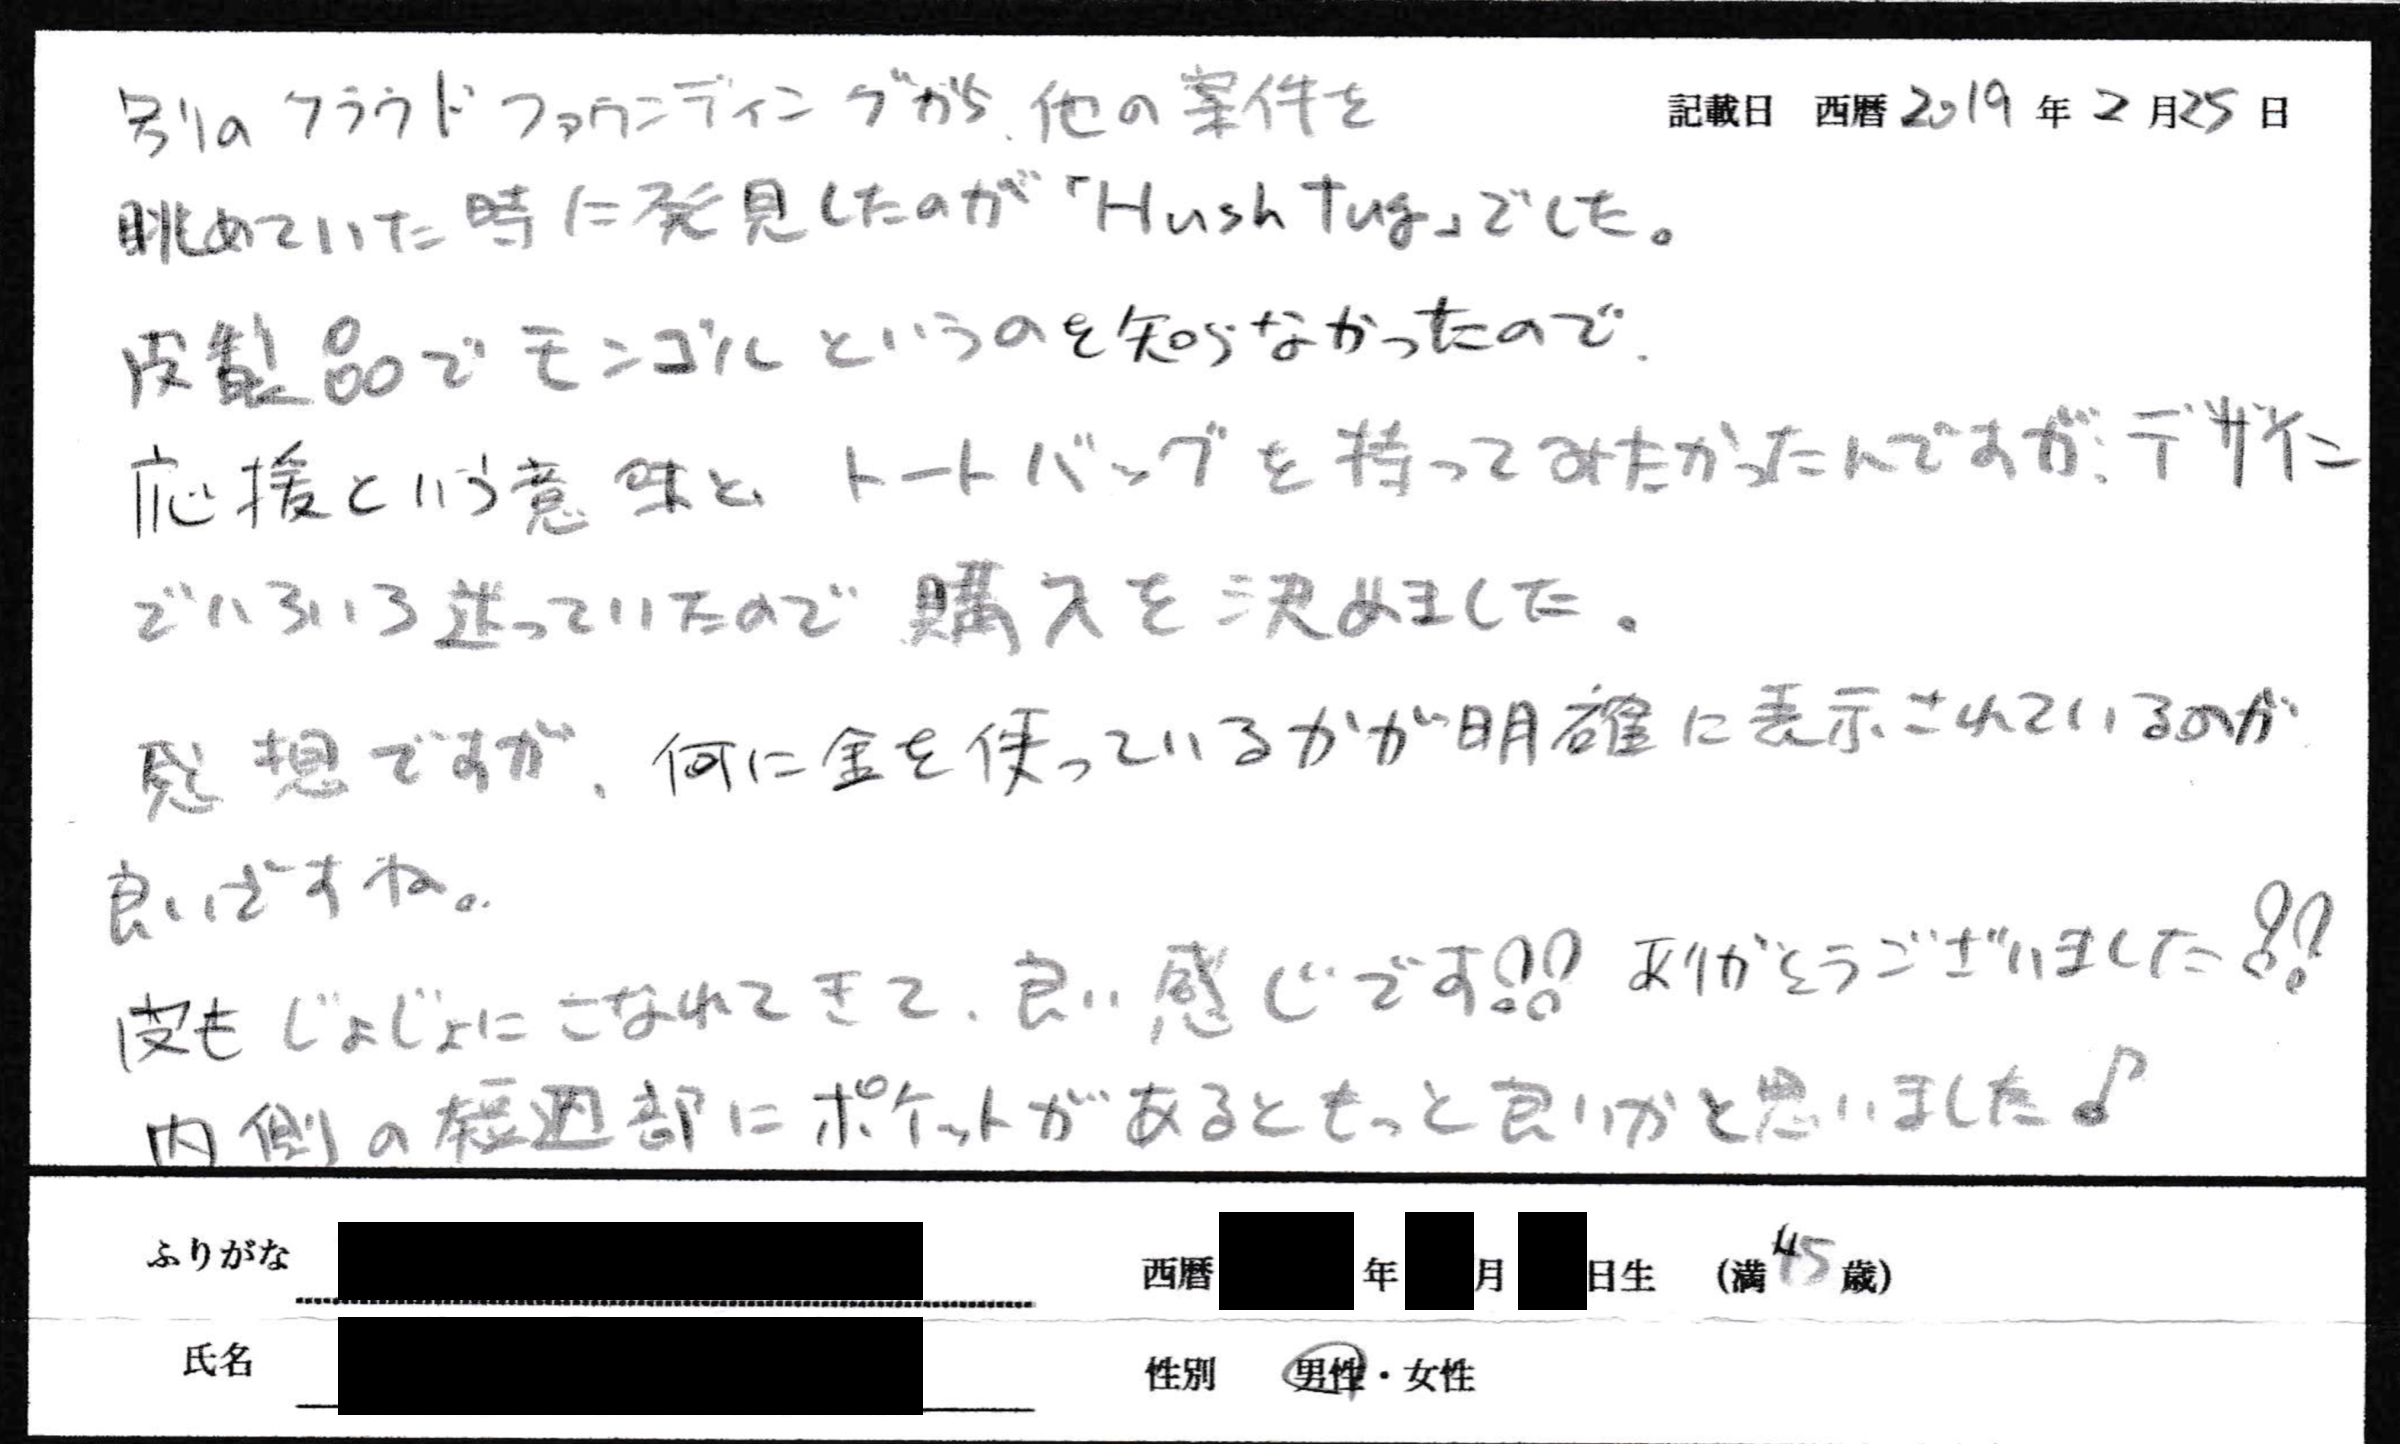 記載日 西暦 2019 年 2 月 25 日
別のクラウドファウンディングから、他の案件を
眺めていた時に発見したのが「Hush tug」でした。
皮製品でモンゴルというのを知らなかったので、
応援という意味と、トートバッグを持ってみたかったんですが、デザイン
でいろいろ迷っていたので購入を決めました。
感想ですが、何に金を使っているかが明確に表示されているのが
良いですね。
皮もじょじょにこなれてきて、良い感じです!! ありがとうございました!!
内側の短辺部にポケットがあるともっと良いかと思いました♪
ふりがな
西暦 年 月 日生 (満 45 歳)
氏名
性別 男性・女性